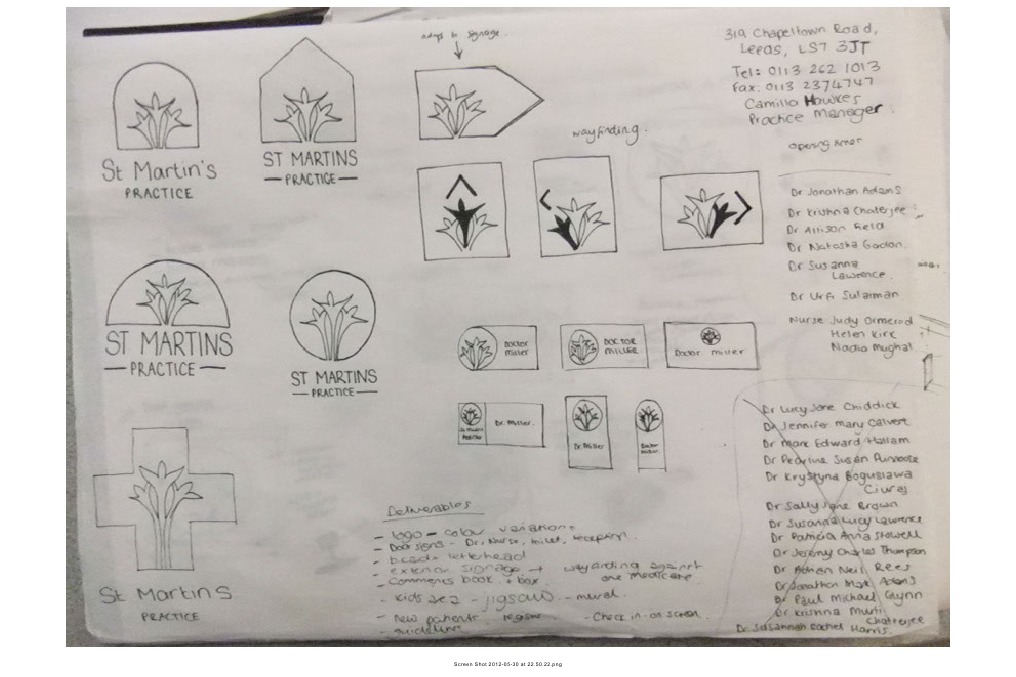 adapt to signage.
319 Chapeltown Road,
Leeds, LS7 3JT
Tel: 0113 262 1013
Fax: 0113 2374747
Camilla Hawkes
Practice Manager
wayfinding.
opening times
St Martin's
PRACTICE
ST MARTINS
PRACTICE
Dr Jonathan Adams
Dr Krishna Chaterjee
Dr Allison Field
Dr Natasha
Dr Susanna
Lawrence.
Dr Urfi Sulaiman
Nurse Judy Ormerod
Helen Kirk
Nadia Mughal
ST MARTINS
PRACTICE
ST MARTINS
PRACTICE
Doctor
miller
DOCTOR
MILLER
Doctor miller
Dr. Miller.
Dr. Miller
Doctor
Dr Lucy Jane Chiddick
Dr Jennifer Mary Calvert
Dr Mark Edward Hallam
Dr Pearline Susan Punnoose
Dr Krystyna Boguslawa
Ciuraj
Dr Sally Jane Brown
Dr Susanna Lucy Lawrence
Dr Pamela Anna Stowell
Dr Jeremy Charles Thompson
Dr Neil Rees
Dr Jonathan Mark Adams
Dr Paul Michael Glynn
Dr Krishna Murti
Chatterjee
Dr Susannah Rachel Harris.
St Martins
PRACTICE
Deliverables
- logo - colour variations
- Door signs - Dr, Nurse, toilet, reception.
- letterhead
- exterior signage + wayfinding against
one medicare.
- Comments book + box
- kids - jigsaw - mural.
- new patients register - Check in on screen
- guidelines
Screen Shot 2012-05-30 at 22.50.22.png